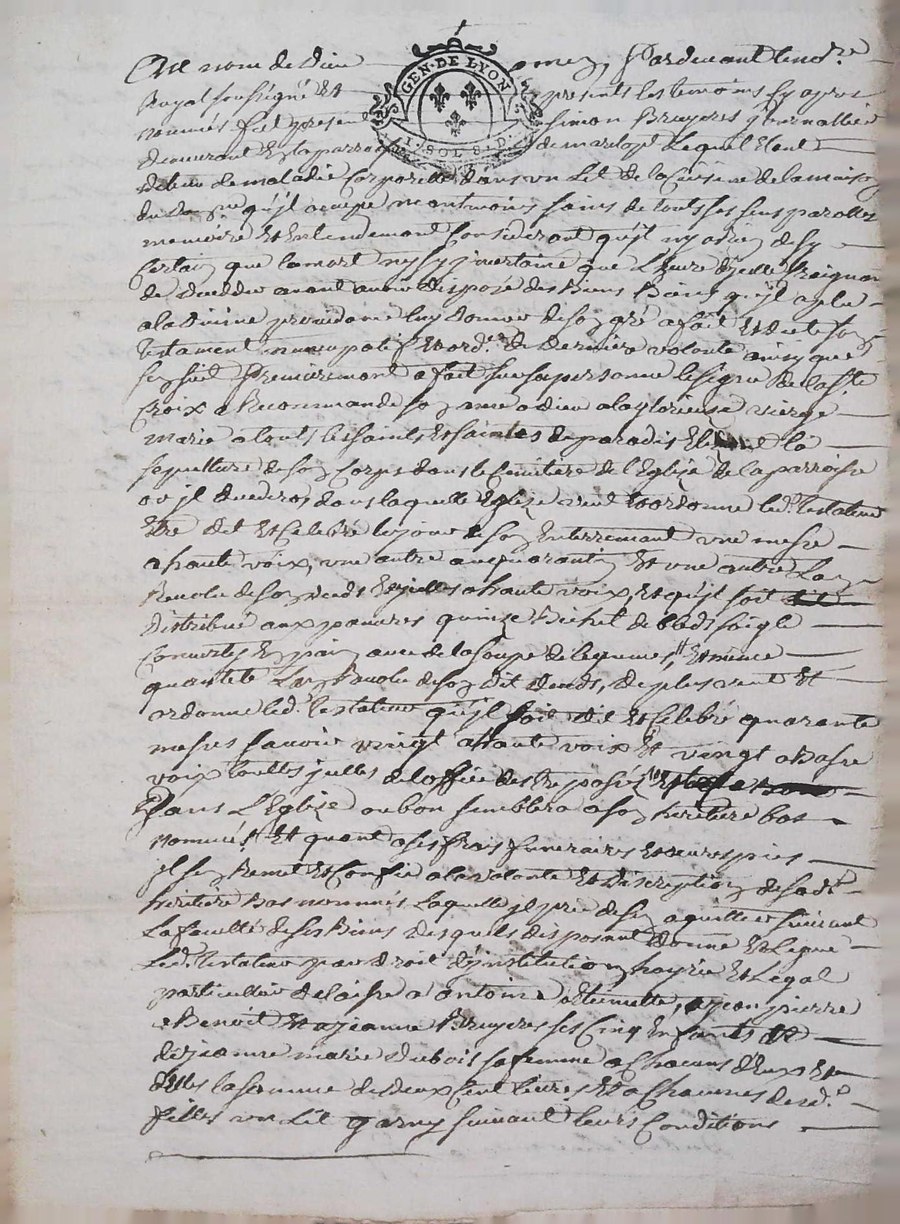 Au nom de Dieu amen, Pardevant le no.re
GEN. DE LYON
1. SOL 8. D.
Royal soussigné et presents les temoins cy apres
nommés fut present simon Bruyere journallier
demeurant en la parroisse de marlop.t Lequel Etant
detenu de maladie Corporelle dans un Lit de la Cuisine de la maison
du qu'jl occupe neantmoins sains de touts ses sens parolles
memoire Et Entendement Considerant qu'jl ny a rien de sy
Certain que la mort ny sy jncertaine que L'heure d'jcelle Craignant
de deceder avant avoir disposé des Biens qu'jl a plu
a la divine providence luy donner de son gré a fait Et dicté son
testament nuncupatif Et ord.ce de derniere volonté ainsy que
sensuit Premierement a fait sur sa personne le signe de la s.te
Croix a Recommandé son ame a dieu a la glorieuse vierge
marie a touts les saints Et saintes de paradis Elit la
sepulture de son Corps dans le Cimitiere de l'Eglise de la parroisse
ou jl decedera dans laquelle Eglize veut Et ordonne led. testateur
Etre dit Et Celebré le jour de son Enterrement une messe
a haute voix, une autre au quarantin Et une autre Lan
Revolu de son deceds Icelles a haute voix, Et qu'jl soit
distribué aux pauvres quinze Bichet de bled soigle
Convertis En pain avec de la soupe de legumes, Et même
quantité Lan Revolu de son dit deceds, de plus veut Et
ordonne led. testateur qu'jl soit dit Et Celebré quarante
messes savoir vingt a haute voix Et vingt a basse
voix touttes jcelles de l'office des trepassés
Dans L'Eglize ou bon semblera a son heritiere bas
nommée Et quant a ses frais funeraires Et œuvres pies
jl s'en Remet Et Confie a la volonté Et discretion de sad.
heritiere Bas nommée Laquelle jl prie de s'en aquitter suivant
La faculté de ses Biens desquels disposant donne Et Legue
Led. testateur par droit d'jnstitution hayrie Et Legat
particullier delaisse a antoine, a Etiennette, a jean pierre
a Benoit Et a jeanne Bruyere ses Cinq Enfants Et
de jeanne marie dubois sa femme a Chacuns d'Eux Et
d'Elles la somme de deux Cent livres Et a Chacunes desd.
filles un Lit garny suivant leurs Conditions